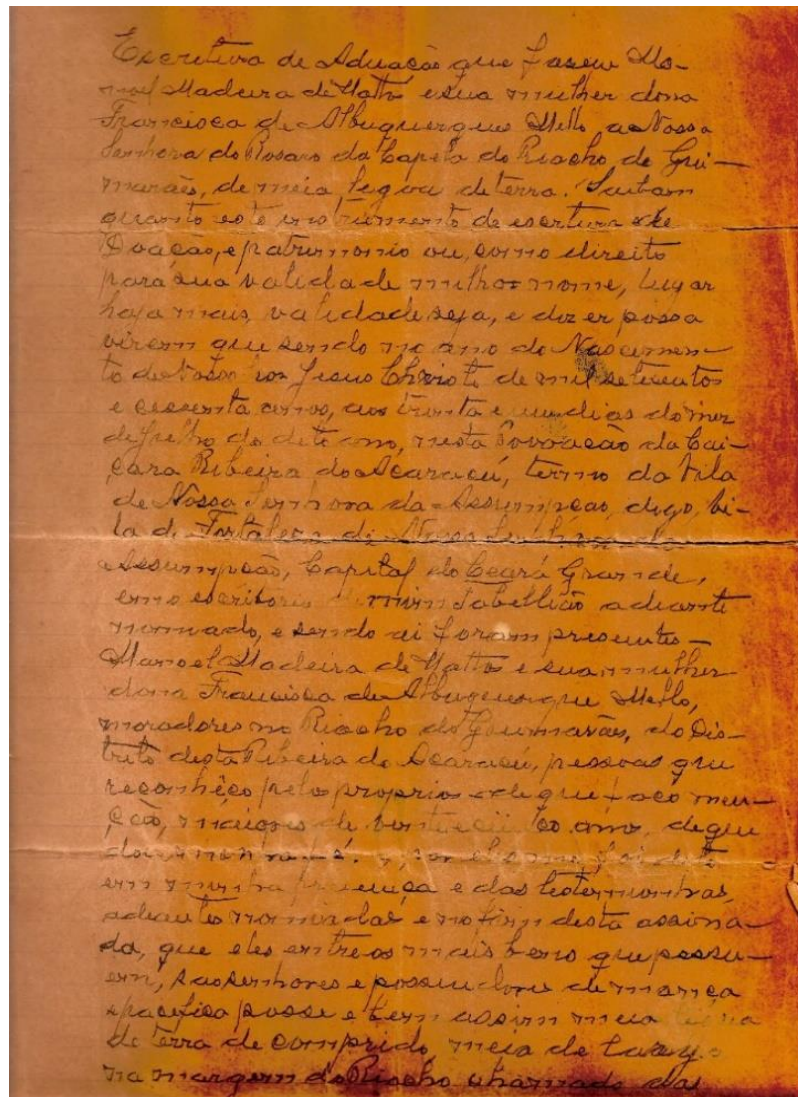 Escritura de Aduação que fasem Ma-
noel Madeira de Matto e sua mulher dona
Francisca de Albuquerque Mello a Nossa
Senhora do Rosaro da Capela do Riacho de Gui-
marães, de meia legoa de terra. Saibam
quanto este instrumento de escritura de
Doação, e patrimonio ou, como direito
para sua validade milhor nome, lugar
haja mais, validade seja, e dizer possa
virem que sendo no ano do Nascimen-
to de Nosso Snr Jesus Christo de mil setecentos
e cessenta e cinco, aos trinta e um dias do mez
de Julho do dito ano, nesta Povoação da Cai-
çara Ribeira do Acaracú, termo da Vila
de Nossa Senhora da Assumpção, digo, Vi-
la da Fortaleza de Nossa Senhora da
Assumpção, Capital do Ceará Grande,
em o escritorio de mim Tabellião adiante
nomiado, e sendo ai foram presentes
Manoel Madeira de Mattos e sua mulher
dona Francisca de Albuquerque Mello,
moradores no Riacho do Guimarães, do Dis-
trito desta Ribeira do Acaracú, pessoas que
reconhêço pelos proprios de que faço men-
ção, maiores de vinte e cinco anos, de que
dou minha fé. E por eles me foi dito
em minha presença e das testemunhas,
adiante nomiadas e no fim desta assina-
da, que eles entre os mais bens que possu-
em, são senhores e possuidores de mança
e pacifica posse e bem assim meia legoa
de terra de comprido, meia de largo
na margem do Riacho chamado das